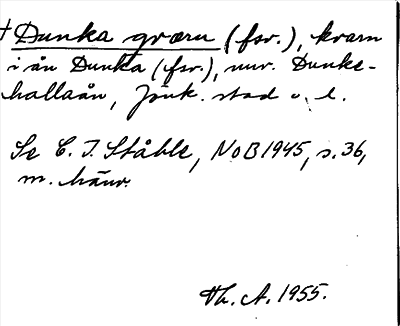 † Dunka græru (fsv.), kvarn
i ån Dunka (fsv.), nuv. Dunke-
hallaån, Jönk. stad o. l.
Se C. I. Ståhle, NoB 1945, s. 36,
m. hänv.
Th. A. 1955.